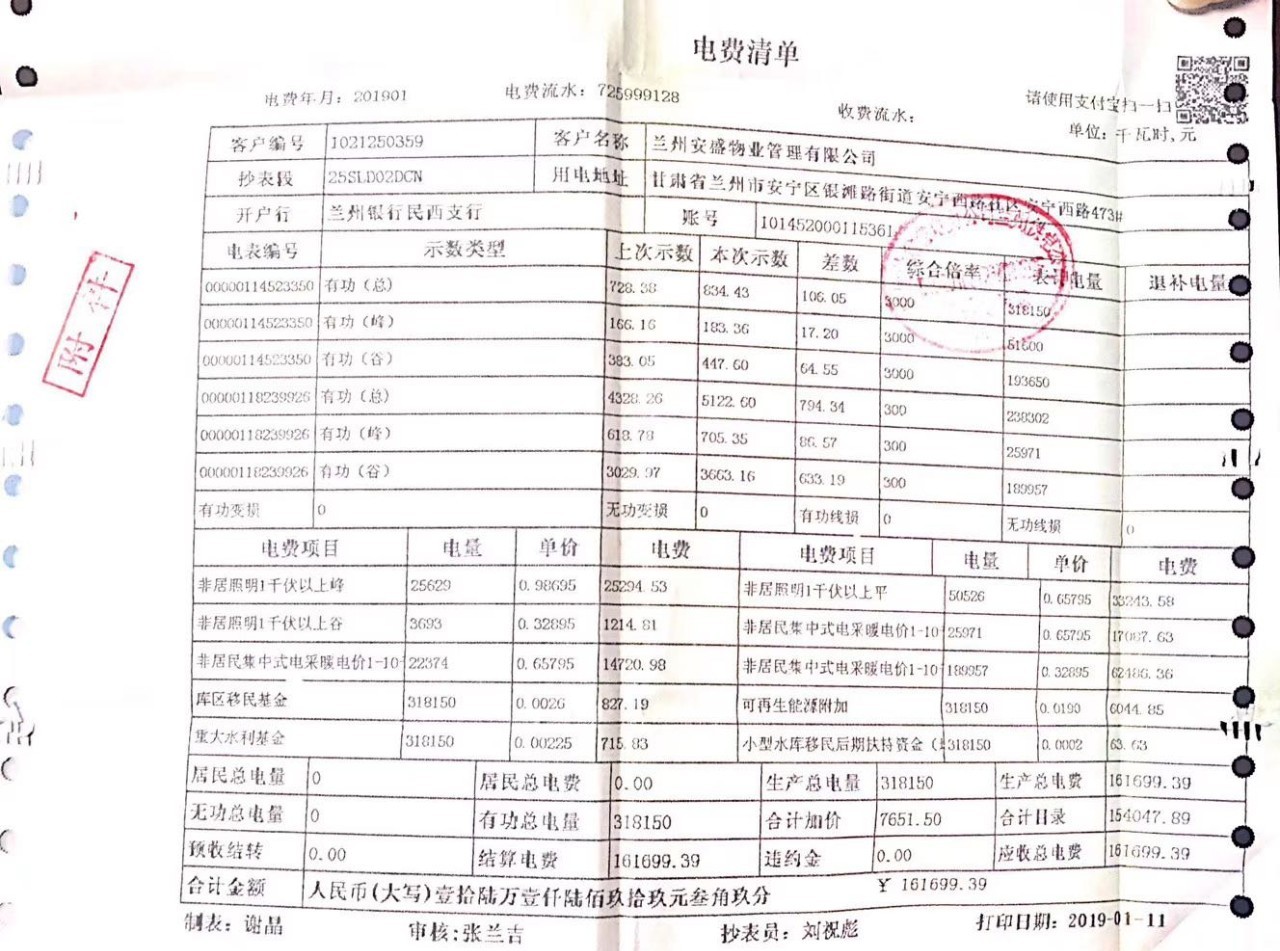 电费清单
请使用支付宝扫一扫
电费年月：201901 电费流水：725999128 收费流水： 单位：千瓦时,元
客户编号 1021250359 客户名称 兰州安盛物业管理有限公司
抄表段 25SLD02DCN 用电地址 甘肃省兰州市安宁区银滩路街道安宁西路社区安宁西路473#
开户行 兰州银行民西支行 账号 101452000115361
电表编号 示数类型 上次示数 本次示数 差数 综合倍率 表计电量 退补电量
00000114523350 有功（总） 728.38 834.43 106.05 3000 318150
00000114523350 有功（峰） 166.16 183.36 17.20 3000 51600
00000114523350 有功（谷） 383.05 447.60 64.55 3000 193650
00000118239926 有功（总） 4328.26 5122.60 794.34 300 238302
00000118239926 有功（峰） 618.78 705.35 86.57 300 25971
00000118239926 有功（谷） 3029.97 3663.16 633.19 300 189957
有功变损 0 无功变损 0 有功线损 0 无功线损 0
电费项目 电量 单价 电费 电费项目 电量 单价 电费
非居照明1千伏以上峰 25629 0.98695 25294.53 非居照明1千伏以上平 50526 0.65795 33243.58
非居照明1千伏以上谷 3693 0.32895 1214.81 非居民集中式电采暖电价1-10 25971 0.65795 17087.63
非居民集中式电采暖电价1-10 22374 0.65795 14720.98 非居民集中式电采暖电价1-10 189957 0.32895 62486.36
库区移民基金 318150 0.0026 827.19 可再生能源附加 318150 0.0190 6044.85
重大水利基金 318150 0.00225 715.83 小型水库移民后期扶持资金（ 318150 0.0002 63.63
居民总电量 0 居民总电费 0.00 生产总电量 318150 生产总电费 161699.39
无功总电量 0 有功总电量 318150 合计加价 7651.50 合计目录 154047.89
预收结转 0.00 结算电费 161699.39 违约金 0.00 应收总电费 161699.39
合计金额 人民币(大写)壹拾陆万壹仟陆佰玖拾玖元叁角玖分 ￥ 161699.39
制表：谢晶 审核:张兰吉 抄表员：刘祝彪 打印日期：2019-01-11
附件